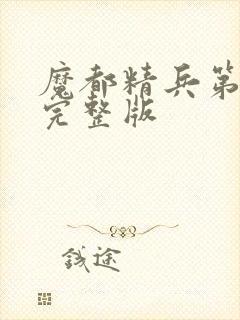 魔都精兵第
完整版
钱途